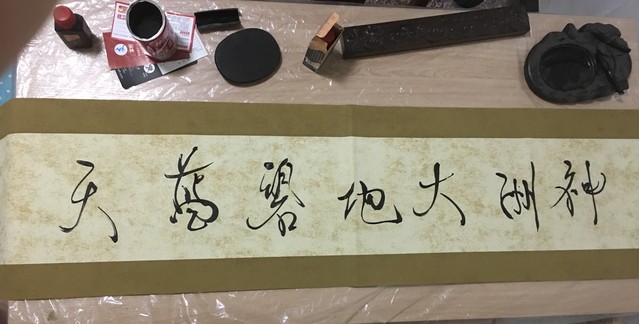 神洲大地碧藍天